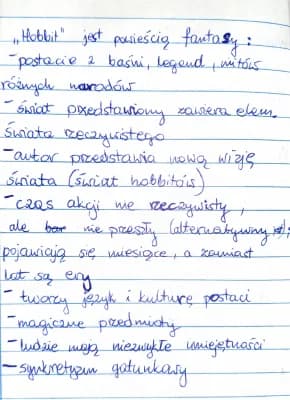 „Hobbit" jest powieścią fantasy:
- postacie z baśni, legend, mitów
różnych narodów
- świat przedstawiony zawiera elem.
świata rzeczywistego
- autor przedstawia nową wizję
świata (świat hobbitów)
- czas akcji nie rzeczywisty,
ale nie przeszły (alternatywny);
pojawiają się miesiące, a zamiast
lat są ery
- tworzy język i kulturę postaci
- magiczne przedmioty
- ludzie mają niezwykłe umiejętności
- synkretyzm gatunkowy